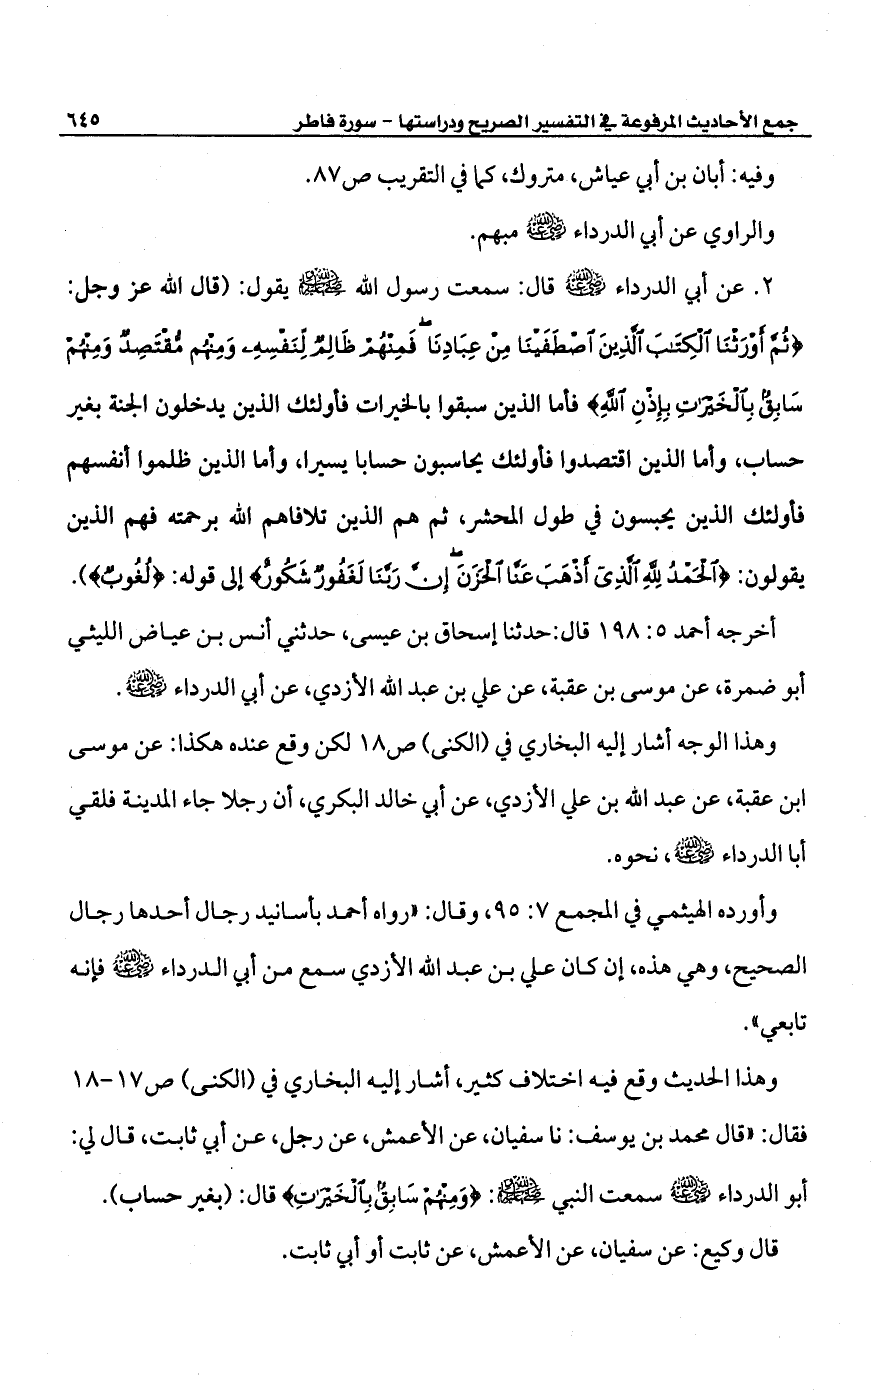 جمع الأحاديث المرفوعة في التفسير الصريح ودراستها - سورة فاطر ٦٤٥
وفيه: أبان بن أبي عياش، متروك، كما في التقريب ص٨٧.
والراوي عن أبي الدرداء رضي الله عنه مبهم.
٢. عن أبي الدرداء رضي الله عنه قال: سمعت رسول الله ﷺ يقول: (قال الله عز وجل:
﴿ثُمَّ أَوْرَثْنَا ٱلْكِتَٰبَ ٱلَّذِينَ ٱصْطَفَيْنَا مِنْ عِبَادِنَا ۖ فَمِنْهُمْ ظَالِمٌ لِّنَفْسِهِۦ وَمِنْهُم مُّقْتَصِدٌ وَمِنْهُمْ
سَابِقٌۢ بِٱلْخَيْرَٰتِ بِإِذْنِ ٱللَّهِ﴾ فأما الذين سبقوا بالخيرات فأولئك الذين يدخلون الجنة بغير
حساب، وأما الذين اقتصدوا فأولئك يحاسبون حسابا يسيرا، وأما الذين ظلموا أنفسهم
فأولئك الذين يحبسون في طول المحشر، ثم هم الذين تلافاهم الله برحمته فهم الذين
يقولون: ﴿ٱلْحَمْدُ لِلَّهِ ٱلَّذِىٓ أَذْهَبَ عَنَّا ٱلْحَزَنَ ۖ إِنَّ رَبَّنَا لَغَفُورٌ شَكُورٌ﴾ إلى قوله: ﴿لُغُوبٌ﴾).
أخرجه أحمد ٥: ١٩٨ قال:حدثنا إسحاق بن عيسى، حدثني أنس بن عياض الليثي
أبو ضمرة، عن موسى بن عقبة، عن علي بن عبد الله الأزدي، عن أبي الدرداء رضي الله عنه.
وهذا الوجه أشار إليه البخاري في (الكنى) ص١٨ لكن وقع عنده هكذا: عن موسى
ابن عقبة، عن عبد الله بن علي الأزدي، عن أبي خالد البكري، أن رجلا جاء المدينة فلقي
أبا الدرداء رضي الله عنه، نحوه.
وأورده الهيثمي في المجمع ٧: ٩٥، وقال: «رواه أحمد بأسانيد رجال أحدها رجال
الصحيح، وهي هذه، إن كان علي بن عبد الله الأزدي سمع من أبي الدرداء رضي الله عنه فإنه
تابعي».
وهذا الحديث وقع فيه اختلاف كثير، أشار إليه البخاري في (الكنى) ص١٧-١٨
فقال: «قال محمد بن يوسف: نا سفيان، عن الأعمش، عن رجل، عن أبي ثابت، قال لي:
أبو الدرداء رضي الله عنه سمعت النبي ﷺ: ﴿وَمِنْهُمْ سَابِقٌۢ بِٱلْخَيْرَٰتِ﴾ قال: (بغير حساب).
قال وكيع: عن سفيان، عن الأعمش، عن ثابت أو أبي ثابت.